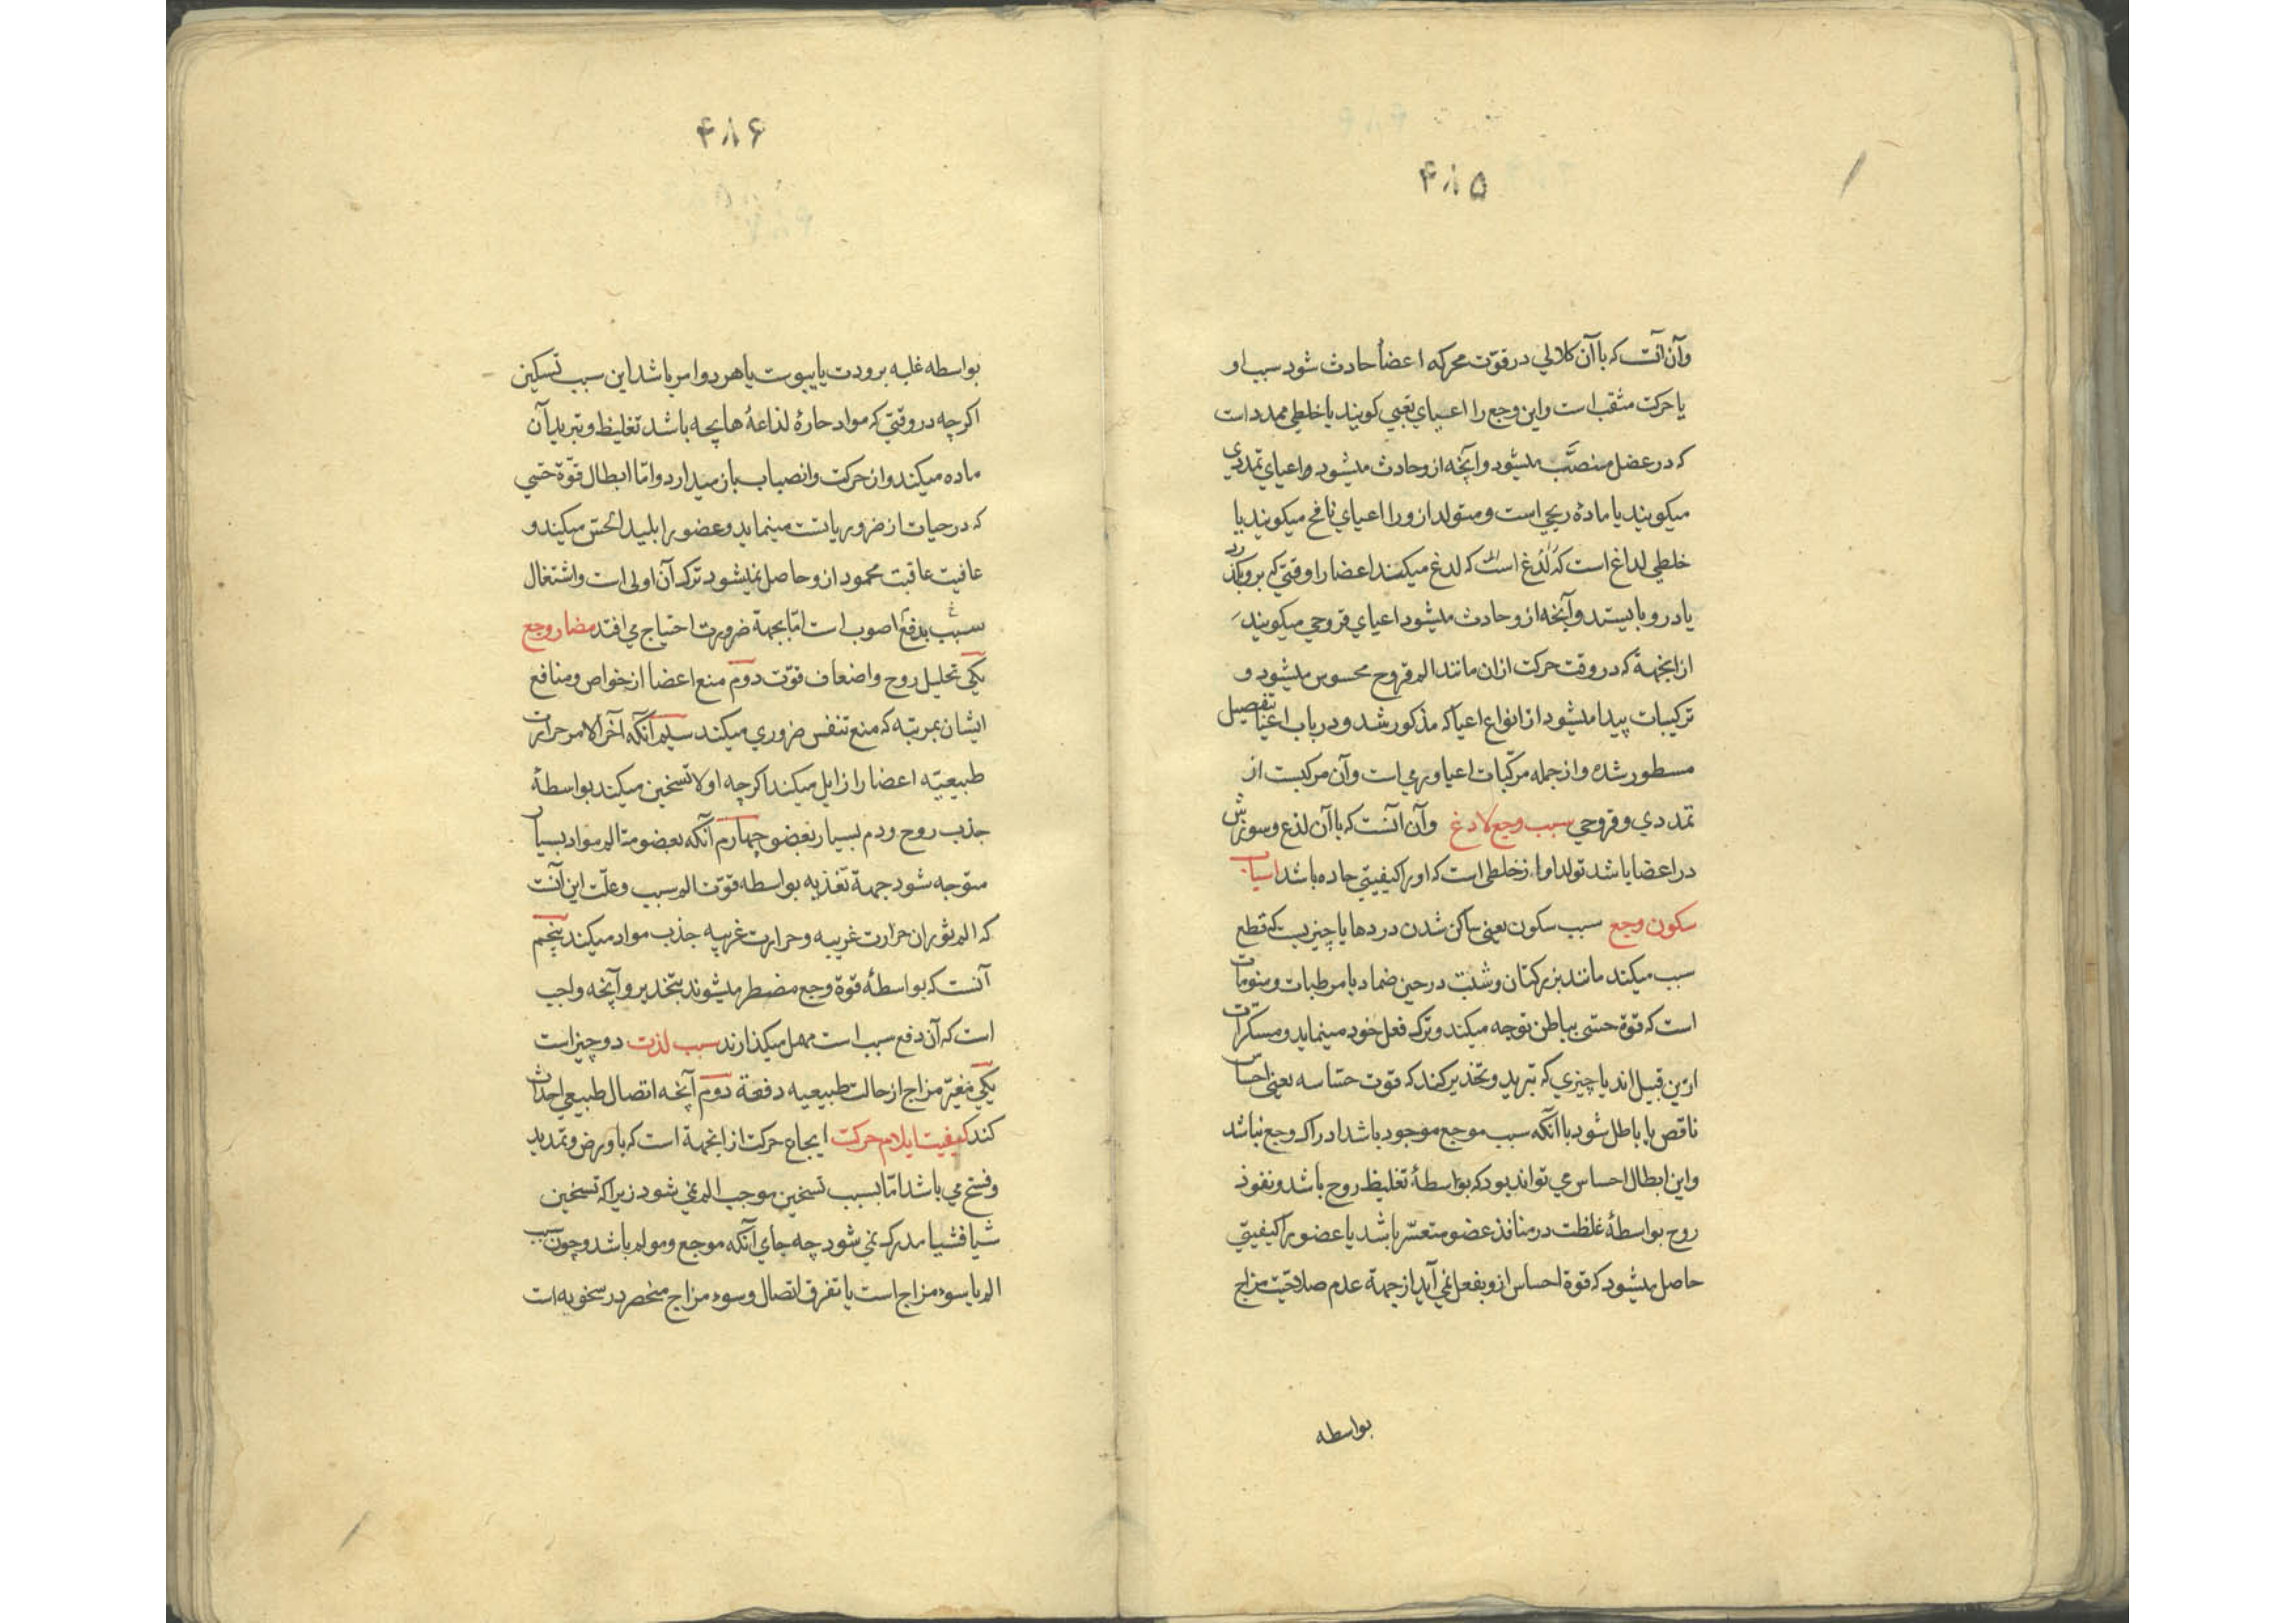 ۴۸۵
وآن آنست که با آن کلالی در قوّت محرکه اعضأ حادث شود سبب او
یا حرکت متعب است واین وجع را اعیای تعبی کویند یا خلطی ممدد است
که در عضل منصبّ میشود وآنچه ازو حادث میشود واعیای تمددی
میکویند یا ماده ریحی است ومتولد ازو را اعیای نافخ میکویند یا
خلطی لداغ است که لدغ میکند اعضا را وقتی که برو بکذرد
یا درو بایستد وآنچه ازو حادث میشود اعیای قروحی میکویند
ازانجهة که در وقت حرکت ازان مانند الم قروح محسوس میشود و
ترکیبات پیدا میشود از انواع اعیا که مذکور شد ودر باب اعیا تفصیل
مسطور شده واز جمله مرکّبات اعیا ورمی است وآن مرکبست از
تمددی وقروحی سبب وجع لادغ وآن آنست که با آن لذع وسوزش
در اعضا باشد تولد او از خلطی است که او را کیفیتی حاده باشد اسباب
سکون وجع سبب سکون یعنی ساکن شدن دردها یا چیزیست که قطع
سبب میکند مانند بزرکتان وشبت در حین ضماد یا مرطبات ومنومات
است که قوة حسّی بباطن توجه میکند وترک فعل خود مینماید ومسکرات
ازین قبیل اند یا چیزی که تبرید وتخدیر کند که قوت حسّاسه یعنی احساس
ناقص یا باطل شود با آنکه سبب موجع موجود باشد ادراک وجع نباشد
واین ابطال احساس می تواند بود که بواسطهٔ تغلیظ روح باشد ونفوذ
روح بواسطهٔ غلظت در منافذ عضو متعسّر باشد یا عضو را کیفیتی
حاصل میشود که قوة احساس ازو بفعل نمی آید از جهة عدم صلاحیّت مزاج
بواسطه
۴۸۶
بواسطه غلبه برودت یا یبوست یا هر دو امر باشد این سبب تسکین
اکرچه در وقتی که مواد حارهٔ لذاعهٔ هایجه باشد تغلیظ وتبرید آن
ماده میکند واز حرکت وانصباب باز میدارد وامّا ابطال قوّة حسّی
که در حیات از ضروریاتست مینماید وعضو را بلید الحسّ میکند و
عافیت عاقبت محمود ازو حاصل نمیشود ترک آن اولی است واشتغال
سبب بدفع اصوب است امّا بجهة ضرورت احتیاج می افتد مضار وجع
یکی تحلیل روح واضعاف قوّت دوم منع اعضا از خواص ومنافع
ایشان بمرتبه که منع تنفس ضروری میکند سیم آنکه آخر الامر حرارت
طبیعیّه اعضا را زایل میکند اکرچه اولا تسخین میکند بواسطهٔ
جذب روح ودم بسیار بعضو چهارم آنکه بعضو متالم مواد بسیار
متوجه شود جهة تغذیه بواسطه قوّت الم سبب وعلّت این آنست
که الم بثوران حرارت غریبه وحرارت غریبه جذب مواد میکند پنجم
آنست که بواسطهٔ قوة وجع مضطر میشوند بتخدیر وآنچه واجب
است که آن دفع سبب است مهمل میکذارند سبب لذت دو چیز است
یکی تغیّر مزاج از حالت طبیعیه دفعة دوم آنچه اتصال طبیعی احداث
کند کیفیت ایلام حرکت ایجاع حرکت ازانجهة است که با او رض وتمدید
وفسخ می باشد امّا بسبب تسخین موجب الم نمی شود زیرا که تسخین
شیأ فشیأ مدرک نمی شود چه جای آنکه موجع ومولم باشد وچون سبب
الم یا سوء مزاج است یا تفرق اتصال وسوء مزاج منحصر در سخونه است